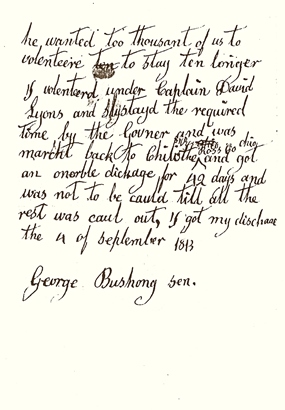 he wanted too thousant of us to
volenteere to stay ten longer
If volenterd under Captain David
Lyons and stayd the required
time by the Govner and was
marcht back to Chilothe and got
an onorble dichage for 42 days and
was not to be cauld till all the
rest was caul out, If got my dischane
the 4 of september 1813
George Bushong sen.